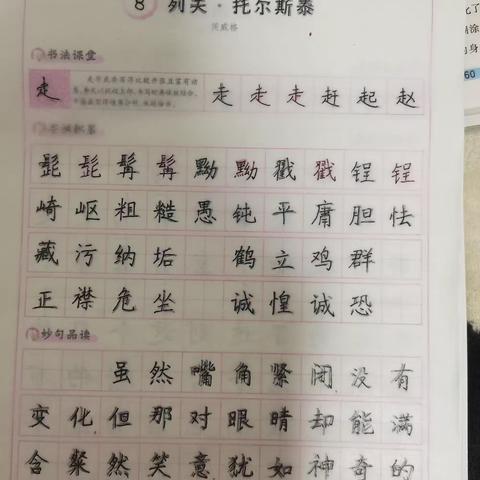 8 列夫·托尔斯泰
茨威格
书法课堂
走 走走走赶起赵
髭髭髯髯黝黝戳戳锃锃
崎岖粗糙愚钝平庸胆怯
藏污纳垢 鹤立鸡群
正襟危坐 诚惶诚恐
妙句品读
虽然嘴角紧闭没有
变化但那对眼睛却能满
含粲然笑意犹如神奇的
60